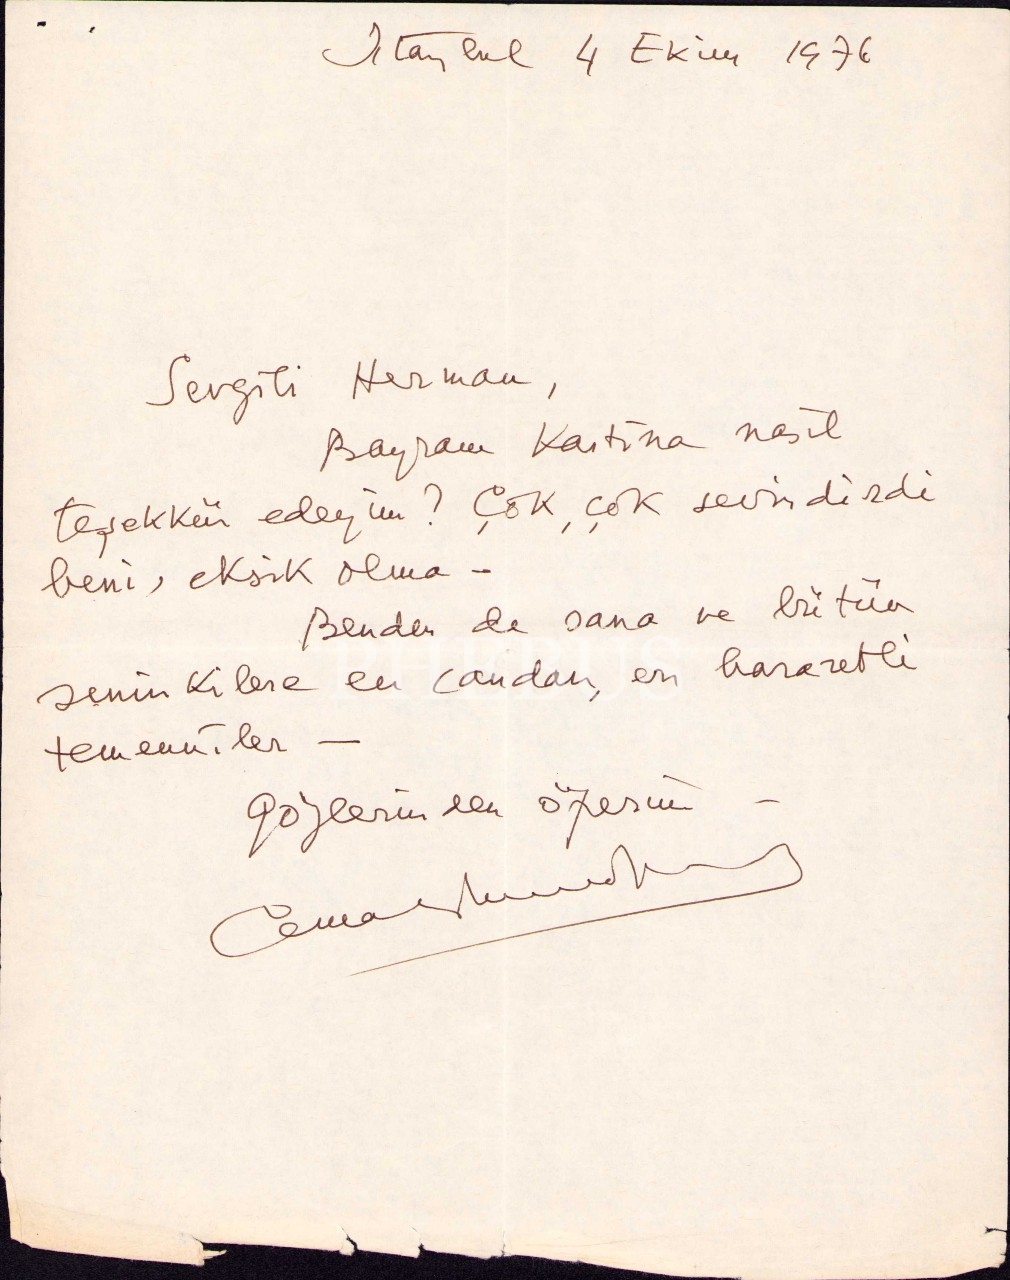 İstanbul 4 Ekim 1976
Sevgili Herman,
Bayram Kartına nasıl
teşekkür edeyim? Çok, çok sevindirdi
beni, eksik olma -
Benden de sana ve bütün
seninkilere en candan, en hararetli
temenniler —
Gözlerinden öperim -
PHEBUS